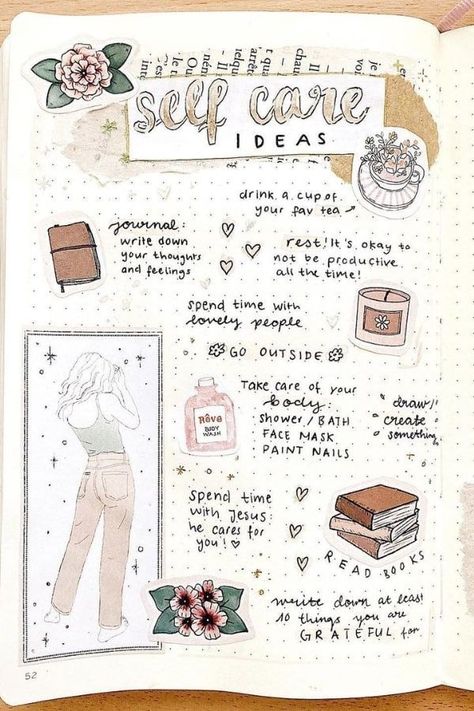 self care
IDEAS
drink a cup of
your fav tea
journal:
write down
your thoughts
and feelings
rest! It's okay to
not be productive
all the time!
spend time with
lovely people
GO OUTSIDE
Take care of your
body:
shower / BATH
FACE MASK
PAINT NAILS
Rêve
BODY
WASH
draw /
create
something
spend time
with Jesus:
he cares for
you!
READ BOOKS
write down at least
10 things you are
GRATEFUL for
52